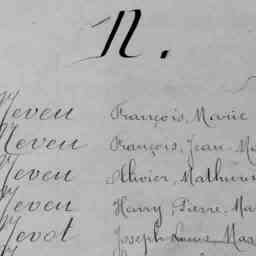 N.
Neveu François, Marie
Neveu François, Jean
Neveu Ollivier, Mathurin
Neveu Harry, Pierre, Ma
Nevot Joseph Louis Mar